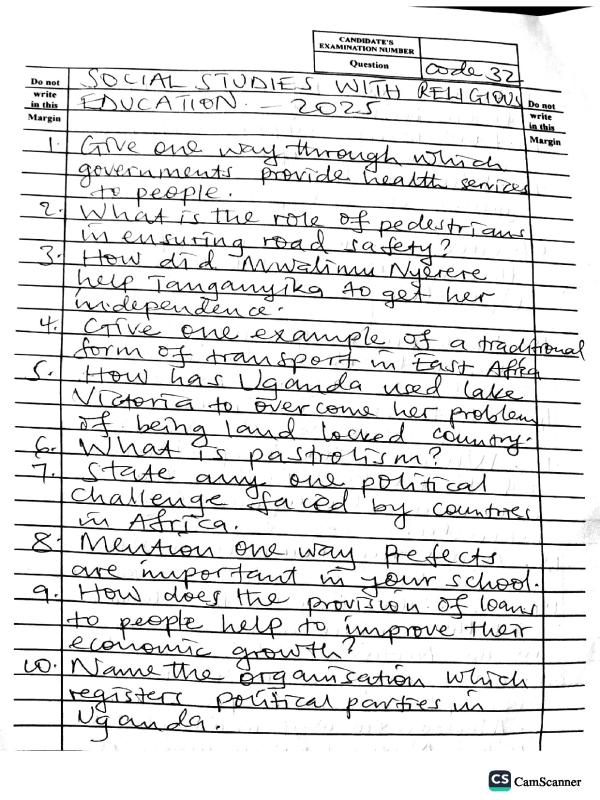 CANDIDATE'S
EXAMINATION NUMBER
Question code 32
Do not
write
in this
Margin
SOCIAL STUDIES WITH RELIGIOUS
EDUCATION. - 2025
Do not
write
in this
Margin
1. Give one way through which
governments provide health services
to people.
2. What is the role of pedestrians
in ensuring road safety?
3. How did Mwalimu Nyerere
help Tanganyika to get her
independence.
4. Give one example of a traditional
form of transport in East Africa
5. How has Uganda used lake
Victoria to overcome her problem
of being land locked country.
6. What is pastrolism?
7. State any one political
challenge faced by countries
in Africa.
8. Mention one way Prefects
are important in your school.
9. How does the provision of loans
to people help to improve their
economic growth?
10. Name the organisation which
registers political parties in
Uganda.
CS CamScanner